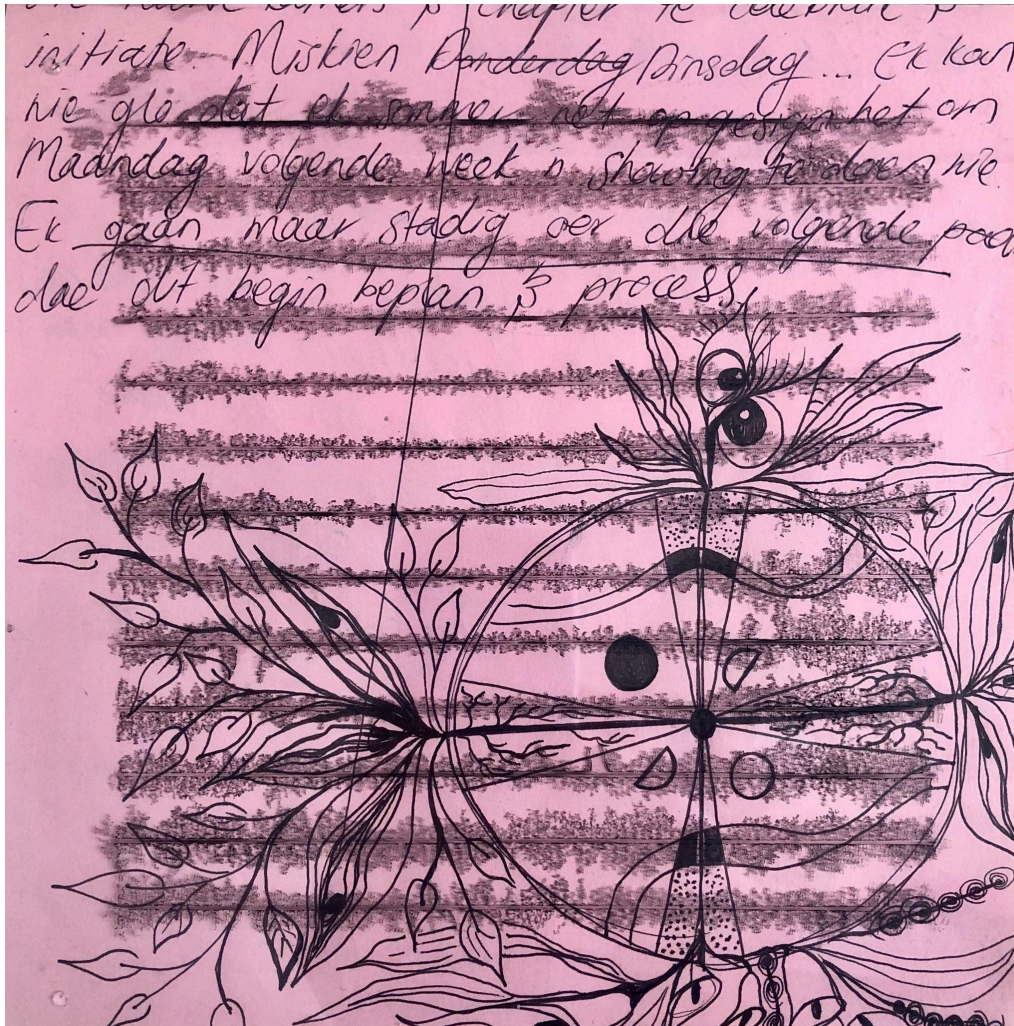 chapter te
initiate. Miskien Donderdag Dinsdag... Ek kan
nie glo dat ek sommer net opgesign het om
Maandag volgende week 'n showing te doen nie.
Ek gaan maar stadig oor die volgende paar
dae dit begin beplan & process